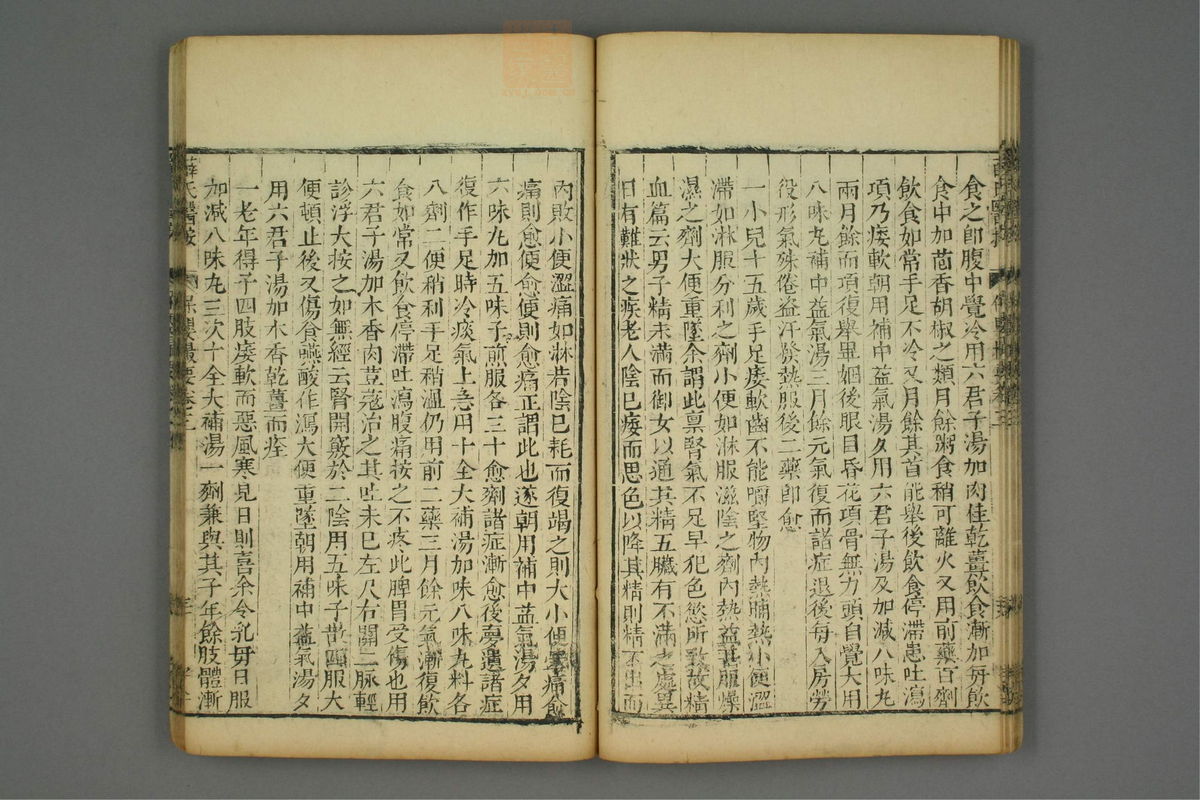 食之即腹中覺冷用六君子湯加肉桂乾薑飲食漸加每飲
食中加茴香胡椒之類月餘粥食稍可離火又用前藥百劑
飲食如常手足不冷又月餘其首能舉後飲食停滯患吐瀉
項乃痿軟朝用補中益氣湯夕用六君子湯及加減八味丸
兩月餘而項復舉畢姻後眼目昏花項骨無力頭自覺大用
八味丸補中益氣湯三月餘元氣復而諸症退後每入房勞
役形氣殊倦盜汗發熱服後二藥即愈
一小兒十五歲手足痿軟齒不能嚼堅物內熱晡熱小便澀
滯如淋服分利之劑小便如淋服滋陰之劑內熱益甚服燥
濕之劑大便重墜余謂此稟腎氣不足早犯色慾所致故精
血篇云男子精未滿而御女以通其精五臟有不滿之處異
日有難狀之疾老人陰已痿而思色以降其精則精不出而
內敗小便澀痛如淋若陰已耗而復竭之則大小便牽痛愈
痛則愈便愈便則愈痛正謂此也遂朝用補中益氣湯夕用
六味丸加五味子煎服各三十愈劑諸症漸愈後夢遺諸症
復作手足時冷痰氣上急用十全大補湯加味八味丸料各
八劑二便稍利手足稍溫仍用前二藥三月餘元氣漸復飲
食如常又飲食停滯吐瀉腹痛按之不疼此脾胃受傷也用
六君子湯加木香肉荳蔻治之其吐未已左尺右關二脉輕
診浮大按之如無經云腎開竅於二陰用五味子散四服大
便頓止後又傷食嚥酸作瀉大便重墜朝用補中益氣湯夕
用六君子湯加木香乾薑而痊
一老年得子四肢痿軟而惡風寒見日則喜余令乳母日服
加減八味丸三次十全大補湯一劑兼與其子年餘肢體漸
薛氏醫按
保嬰撮要卷三